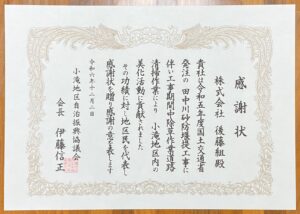 感謝状
株式会社 後藤組殿
貴社は令和五年度国土交通省
発注の田中川砂防堰堤工事に
伴い工事期間中除草作業道路
清掃作業により小滝地区内の
美化活動に貢献されました
その功績に対し地区民を代表し
感謝状を贈り感謝の意を表します
令和六年十二月二日
小滝地区自治振興協議会
会長 伊藤信正